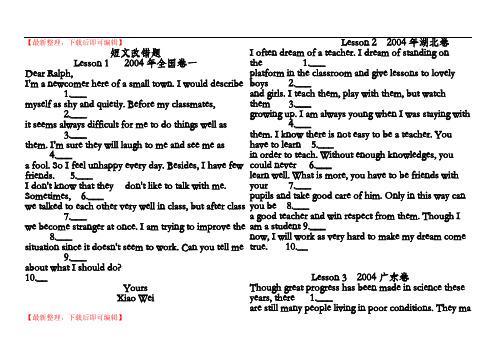 【最新整理，下载后即可编辑】
短文改错题
Lesson 1 2004年全国卷一
Dear Ralph,
I'm a newcomer here of a small town. I would describe
1.____
myself as shy and quietly. Before my classmates,
2.____
it seems always difficult for me to do things well as
3.____
them. I'm sure they will laugh to me and see me as
4.____
a fool. So I feel unhappy every day. Besides, I have few
friends. 5.____
I don't know that they don't like to talk with me.
Sometimes, 6.____
we talked to each other very well in class, but after class
7.____
we become stranger at once. I am trying to improve the
8.____
situation since it doesn't seem to work. Can you tell me
9.____
about what I should do?
10.__
Yours
Xiao Wei
【最新整理，下载后即可编辑】
Lesson 2 2004年湖北卷
I often dream of a teacher. I dream of standing on
the 1.____
platform in the classroom and give lessons to lovely
boys 2.____
and girls. I teach them, play with them, but watch
them 3.____
growing up. I am always young when I was staying with
4.____
them. I know there is not easy to be a teacher. You
have to learn 5.____
in order to teach. Without enough knowledges, you
could never 6.____
learn well. What is more, you have to be friends with
your 7.____
pupils and take good care of him. Only in this way can
you be 8.____
a good teacher and win respect from them. Though I
am a student 9.____
now, I will work as very hard to make my dream come
true. 10.__
Lesson 3 2004广东卷
Though great progress has been made in science these
years, there 1.____
are still many people living in poor conditions. They ma